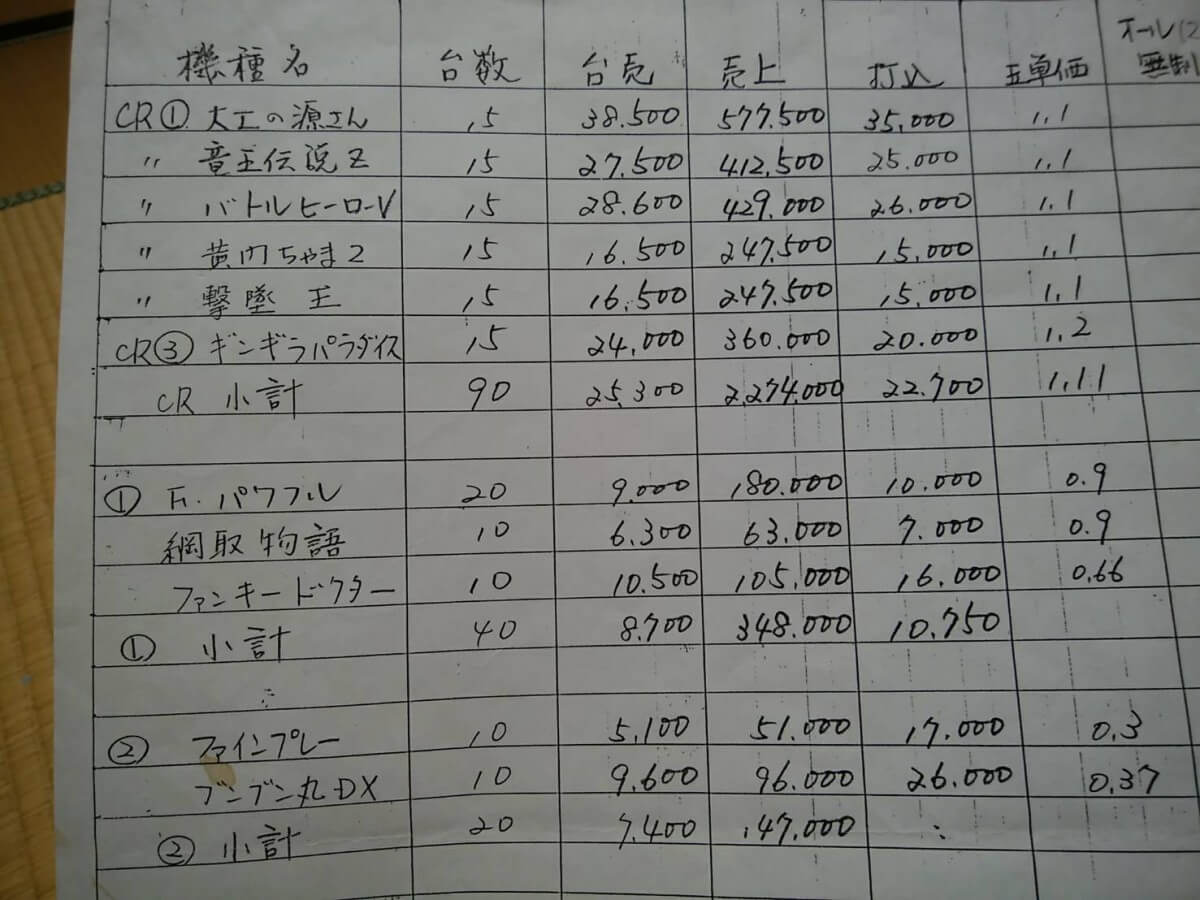 機種名 台数 台売 売上 打込 玉単価 オール(2 無制
CR① 大工の源さん 15 38.500 577.500 35.000 1.1
〃 竜王伝説Z 15 27.500 412.500 25.000 1.1
〃 バトルヒーローV 15 28.600 429.000 26.000 1.1
〃 黄門ちゃま2 15 16.500 247.500 15.000 1.1
〃 撃墜王 15 16.500 247.500 15.000 1.1
CR③ ギンギラパラダイス 15 24.000 360.000 20.000 1.2
CR 小計 90 25.300 2.274.000 22.700 1.11
① F.パワフル 20 9.000 180.000 10.000 0.9
綱取物語 10 6.300 63.000 7.000 0.9
ファンキードクター 10 10.500 105.000 16.000 0.66
① 小計 40 8.700 348.000 10.750
② ファインプレー 10 5.100 51.000 17.000 0.3
ブンブン丸DX 10 9.600 96.000 26.000 0.37
② 小計 20 7.400 147.000